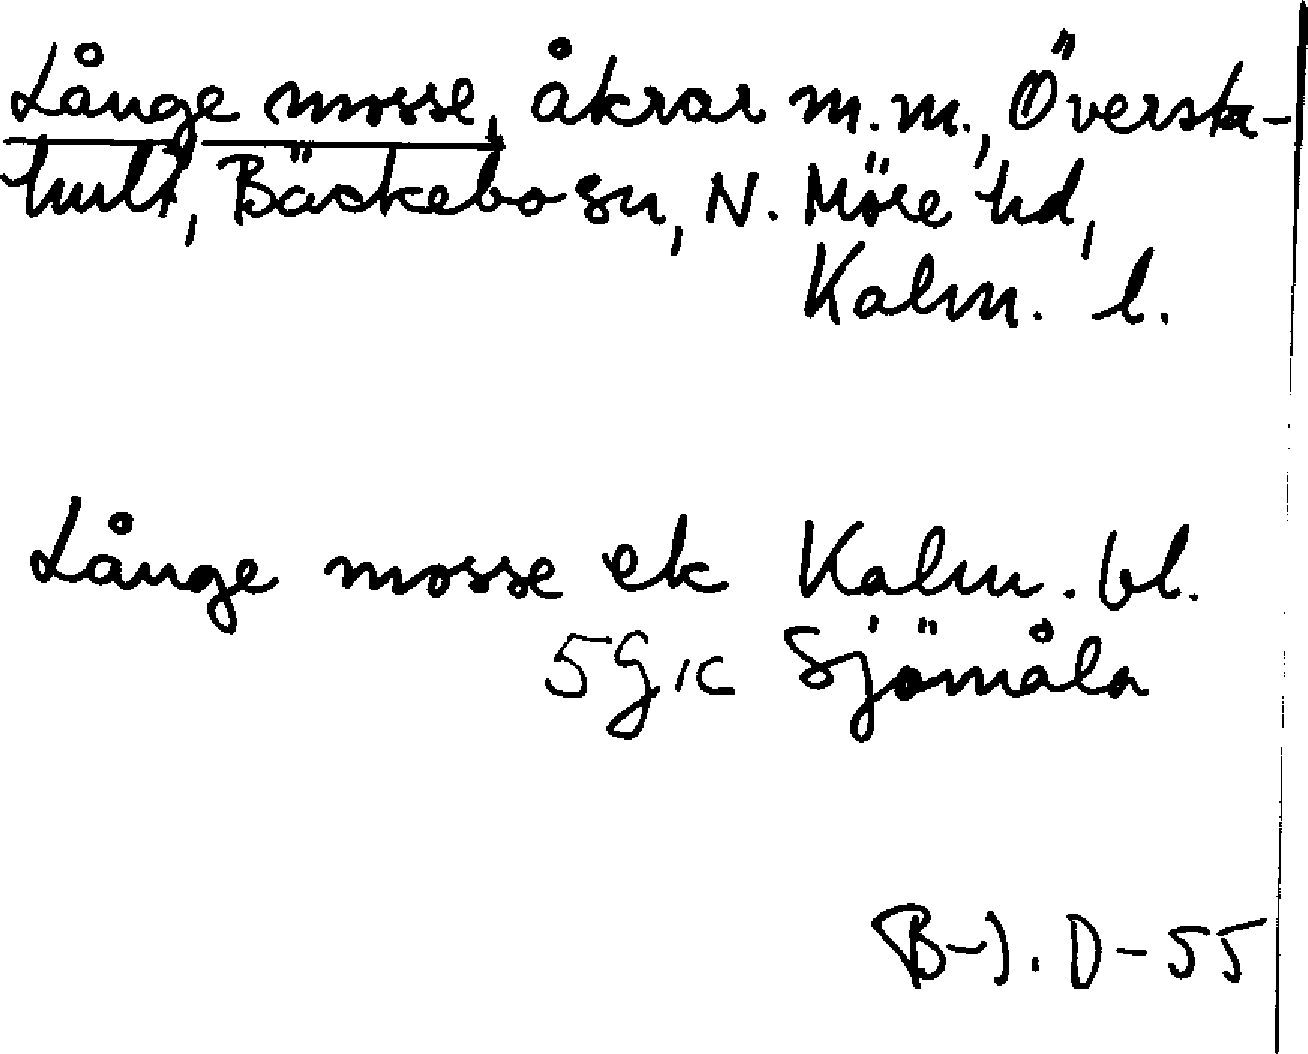 Långe mosse, åkrar m.m., Översta-
hult, Bäckebo sn, N. Möre hd,
Kalm. l.
Långe mosse ek Kalm. bl.
5G1c Sjömåla
B-J. D-55